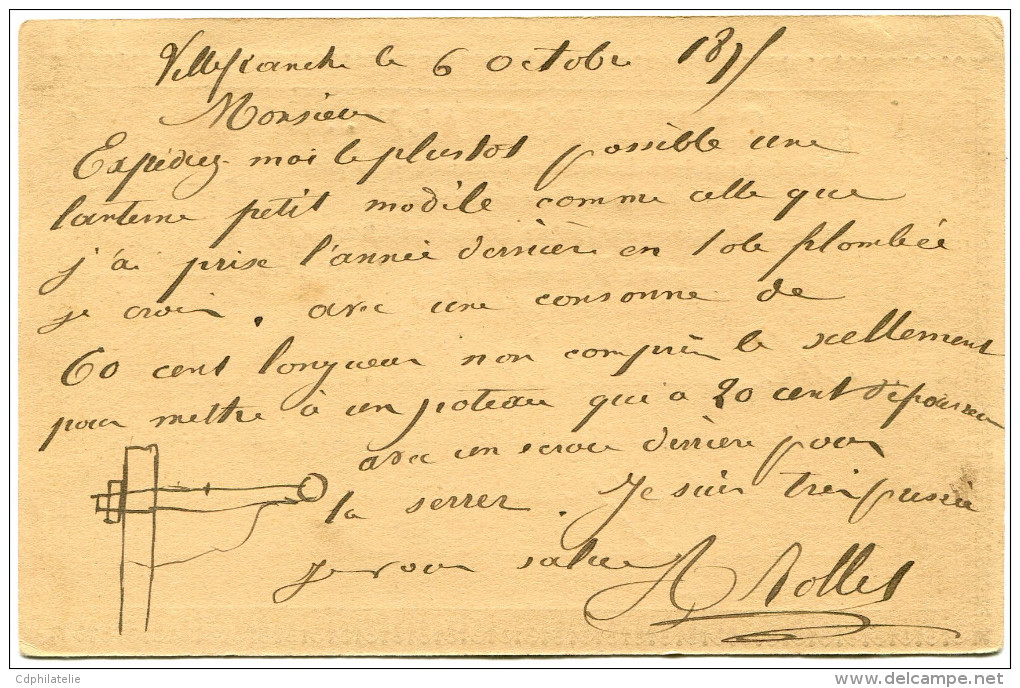 Villefranche le 6 Octobre 1875
Monsieur
Expédiez moi le plustot possible une
lanterne petit modèle comme celle que
j'ai prise l'année dernière en tole plombée
je crois. avec une consonne de
60 cent longueur non compris le scellement
pour mettre à un poteau qui a 20 cent d'épaisseur
avec un ecrou derrière pour
la serrer. Je suis très pressé
je vous salue
Cdphilatelie
delcampe.net